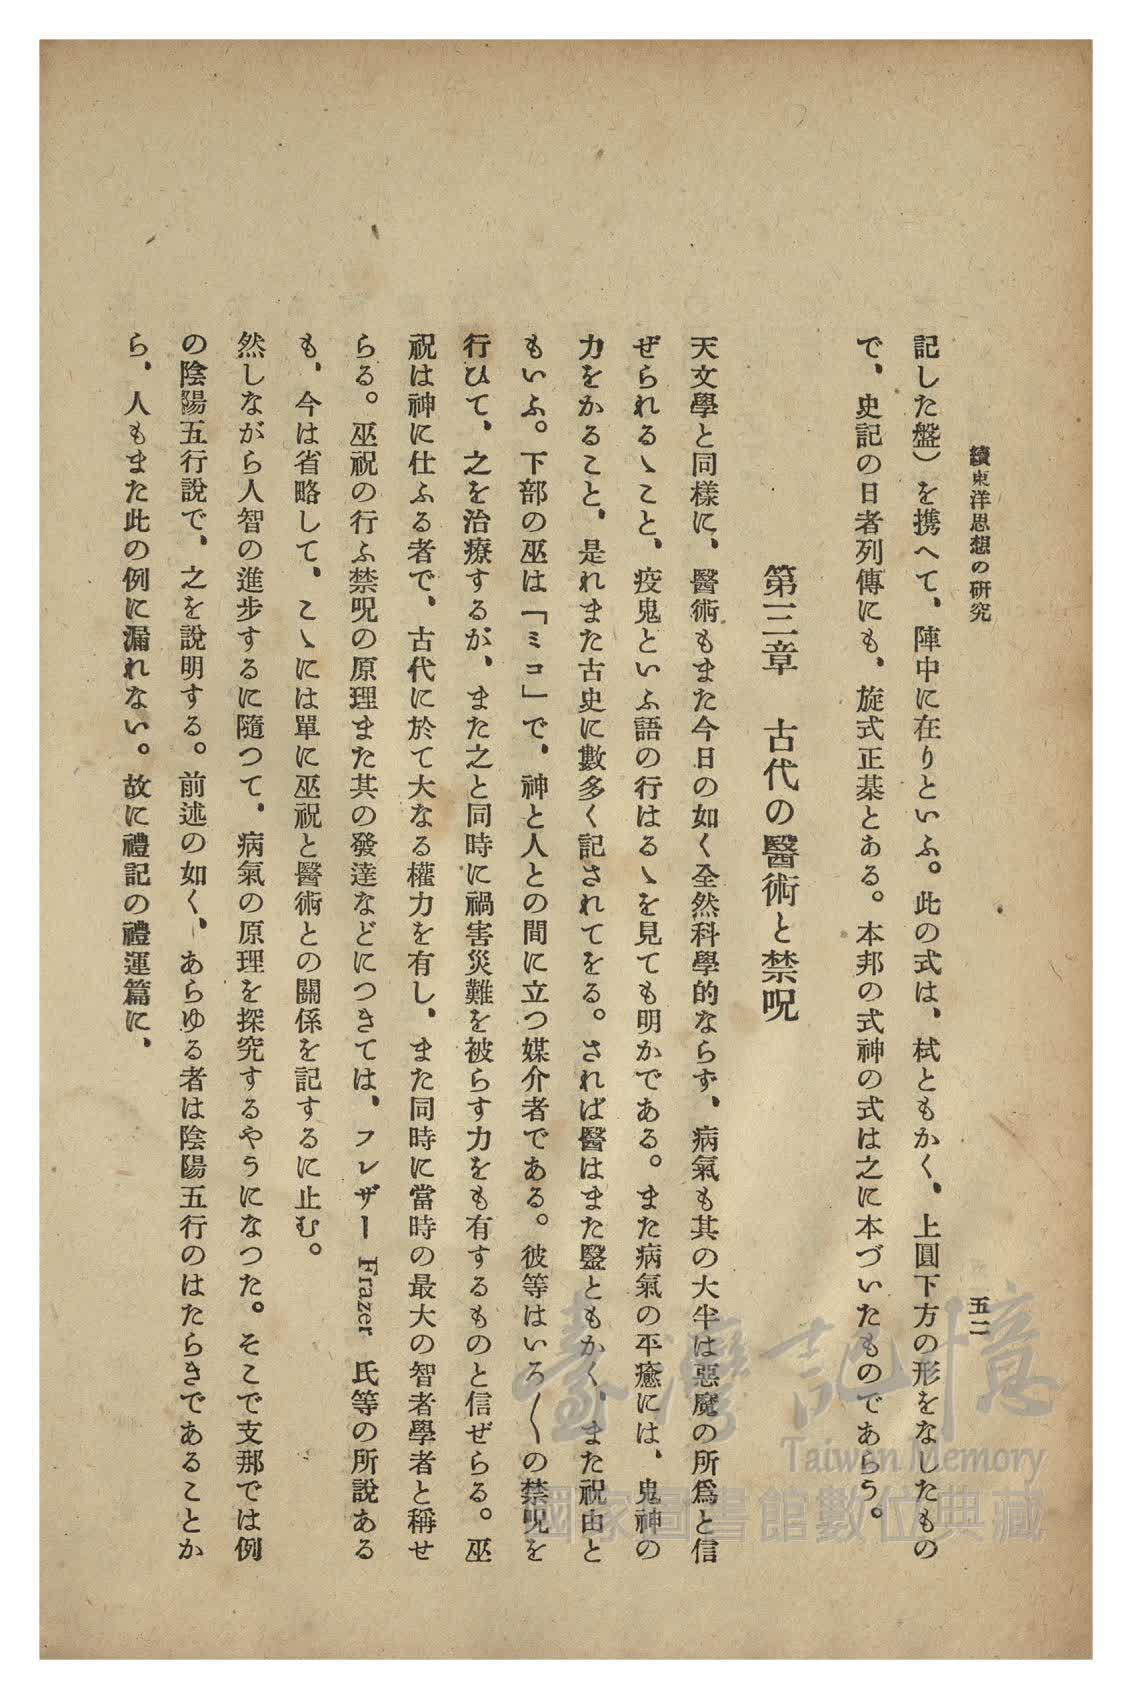 續東洋思想の研究
五二
記した盤)を携へて、陣中に在りといふ。此の式は、栻ともかく、上圓下方の形をなしたもの
で、史記の日者列傳にも、旋式正棊とある。本邦の式神の式は之に本づいたものであらう。
第三章　古代の醫術と禁呪
天文學と同様に、醫術もまた今日の如く全然科學的ならず、病氣も其の大半は惡魔の所爲と信
ぜられるゝこと、疫鬼といふ語の行はるゝを見ても明かである。また病氣の平癒には、鬼神の
力をかること、是れまた古史に數多く記されてをる。されば醫はまた毉ともかく、また祝由と
もいふ。下部の巫は「ミコ」で、神と人との間に立つ媒介者である。彼等はいろ〱の禁呪を
行ひて、之を治療するが、また之と同時に禍害災難を被らす力をも有するものと信ぜらる。巫
祝は神に仕ふる者で、古代に於て大なる權力を有し、また同時に當時の最大の智者學者と稱せ
らる。巫祝の行ふ禁呪の原理また其の發達などにつきては、フレザー Frazer 氏等の所說ある
も、今は省略して、こゝには單に巫祝と醫術との關係を記するに止む。
然しながら人智の進步するに隨つて、病氣の原理を探究するやうになつた。そこで支那では例
の陰陽五行說で、之を說明する。前述の如く、あらゆる者は陰陽五行のはたらきであることか
ら、人もまた此の例に漏れない。故に禮記の禮運篇に、
臺灣記憶
Taiwan Memory
國家圖書館數位典藏